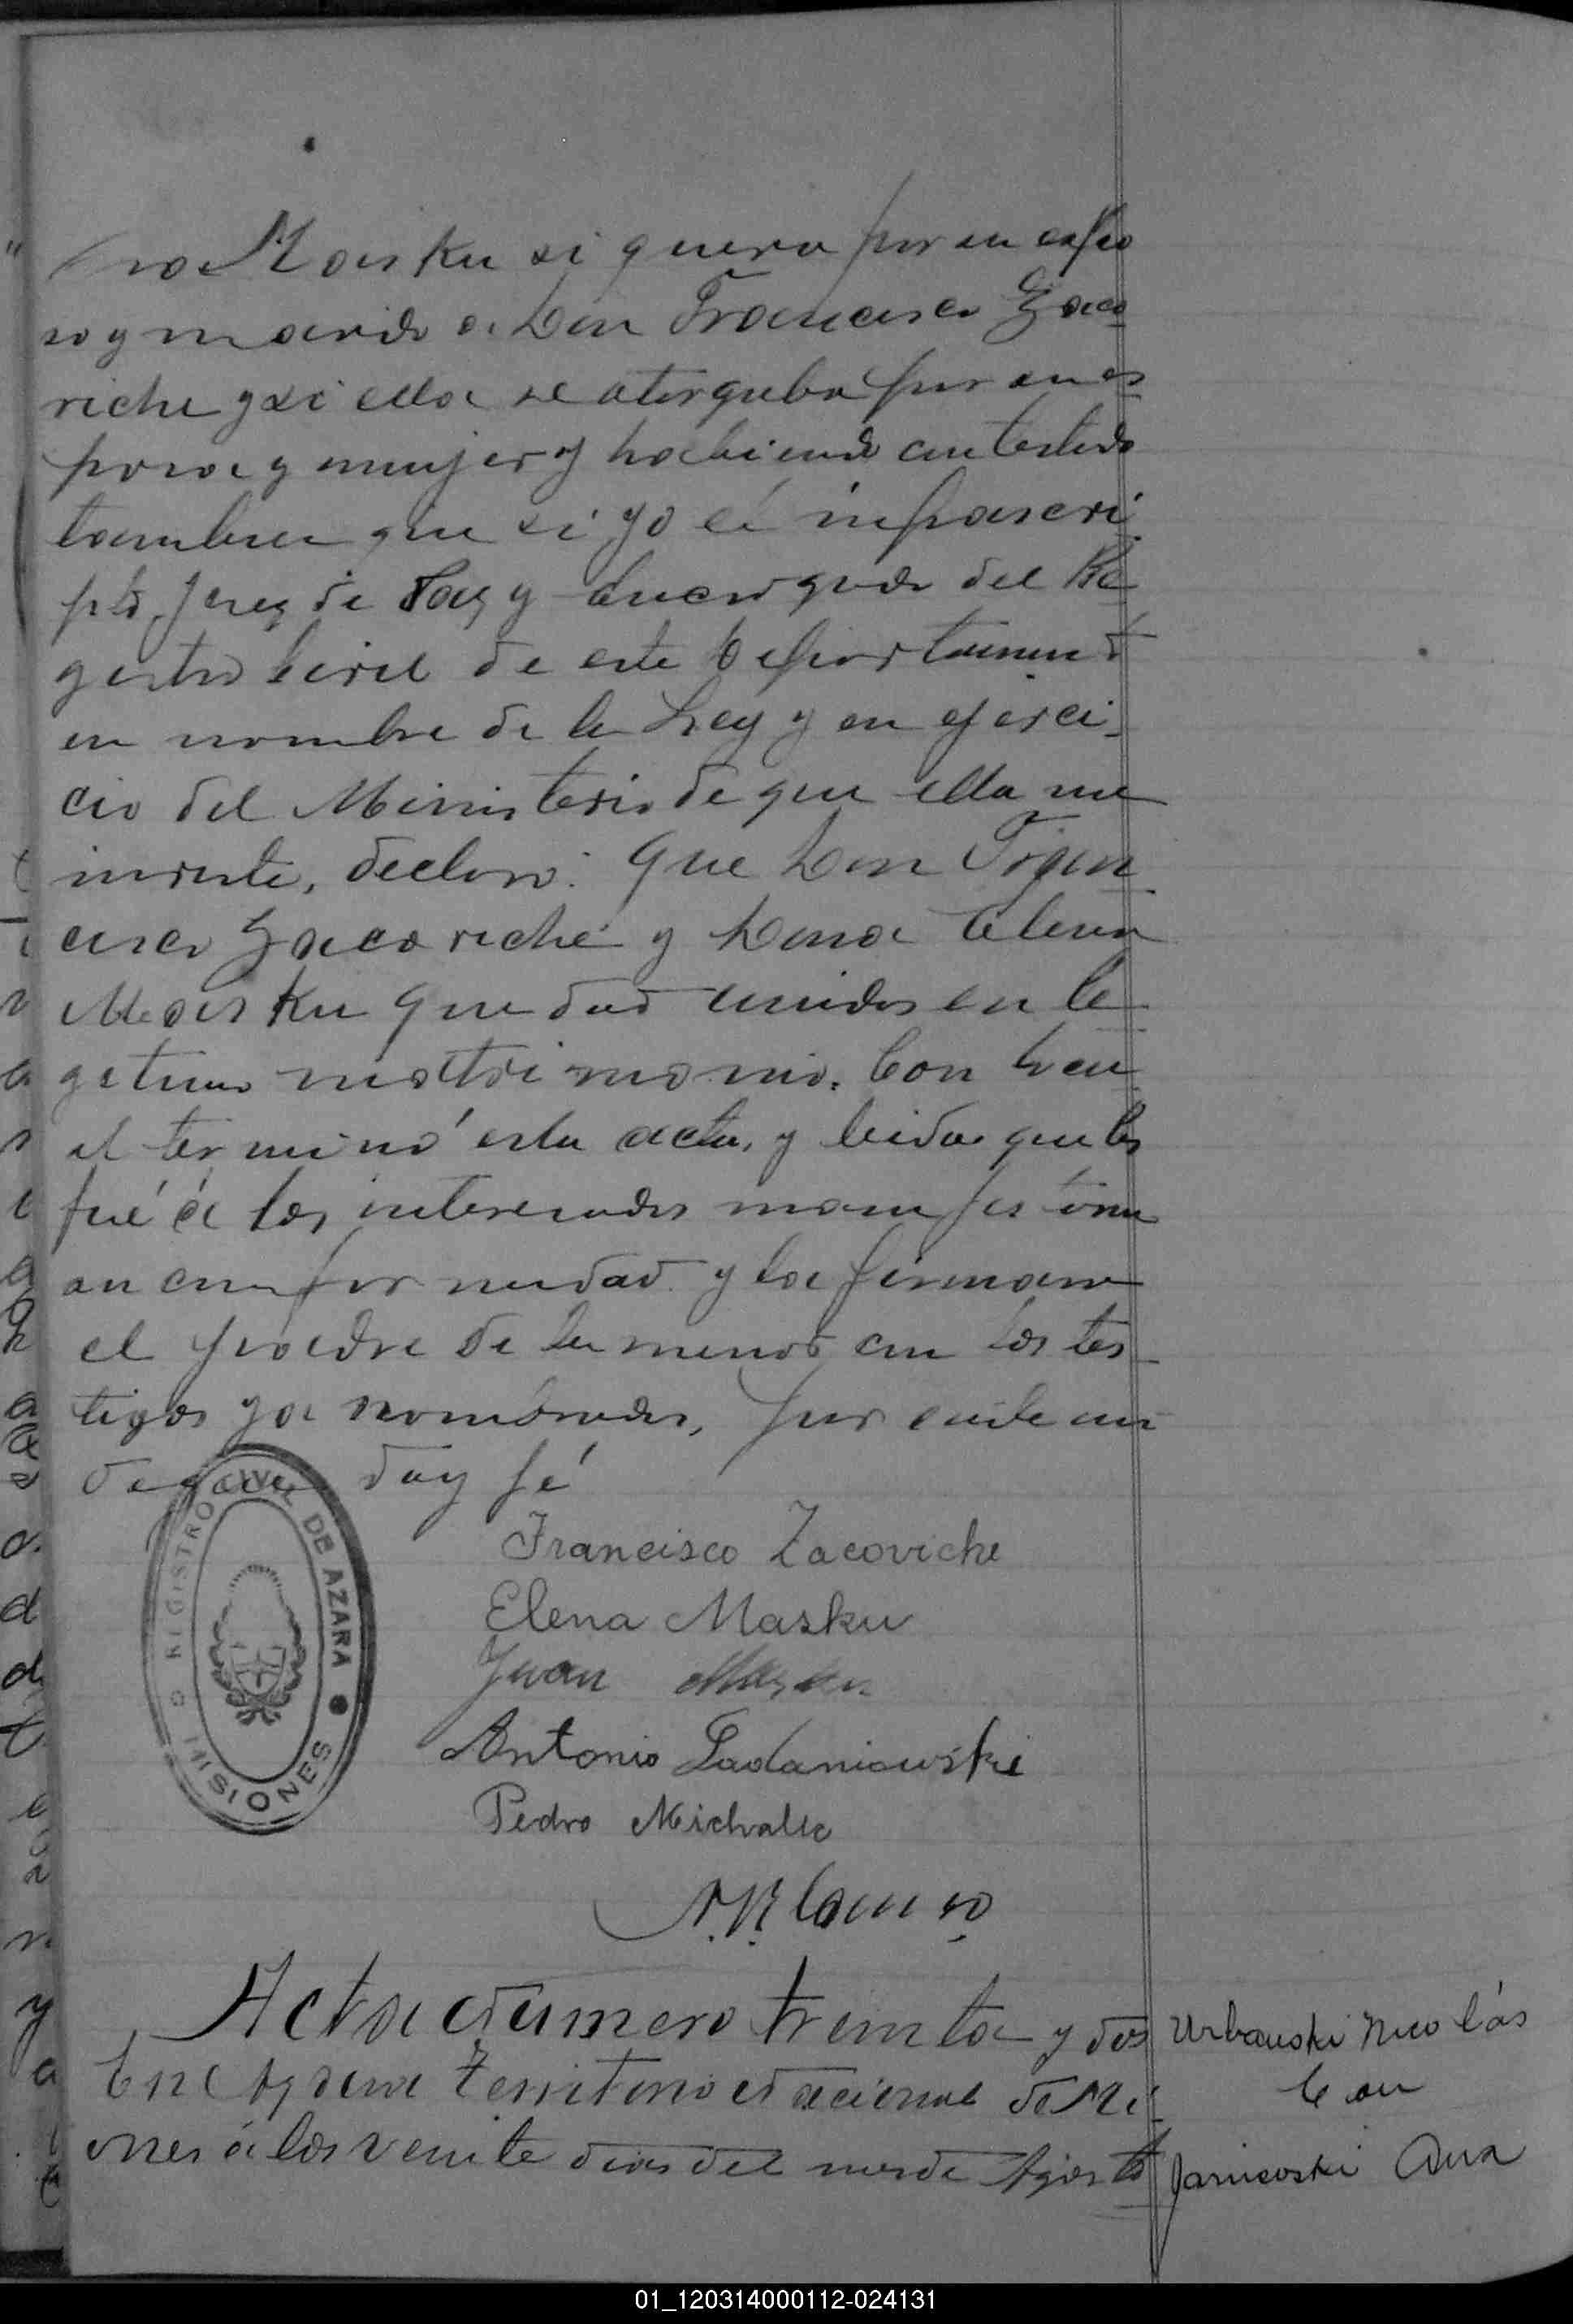 na Masku si queria por su espo
so y marido a Don Francisco Zaco
viche y si ella se otorgaba por su es
posa y mujer y habiendo contestado
tambien que si yo el infrascri
pto, Juez de Paz y Encargado del Re
gistro Civil de este Departament
en nombre de la Ley y en ejerci-
cio del Ministerio de que ella me
inviste, declaro: Que Don Fran
cisco Zacoviche y Dona Elena
Masku quedan unidos en le
gitimo matrimonio. Con lo cu
al terminó esta acta, y leida que les
fué á los interesados manifestaron
su conformidad y la firmaron
el padre de la menor con los tes
tigos ya nombrados, por ante mi
de que doy fé
Francisco Zacoviche
Elena Masku
Juan Masku
Antonio Ladaniowski
Pedro Michalec
REGISTRO CIVIL DE AZARA
MISIONES
Acta Numero treinta y dos
En Azara Territorio Nacional de Mi
ones á los veinte dias del mes de Agosto
Urbanski Nicolás
Con
Janicoski Ana
01_120314000112-024131